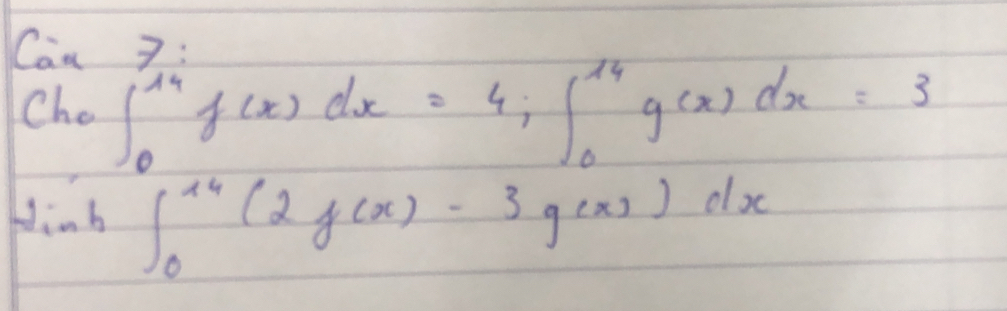 Câu 7:
Cho ∫₀¹⁴ f(x) dx = 4; ∫₀¹⁴ g(x) dx = 3
Tính ∫₀¹⁴ (2 f(x) - 3 g(x)) dx